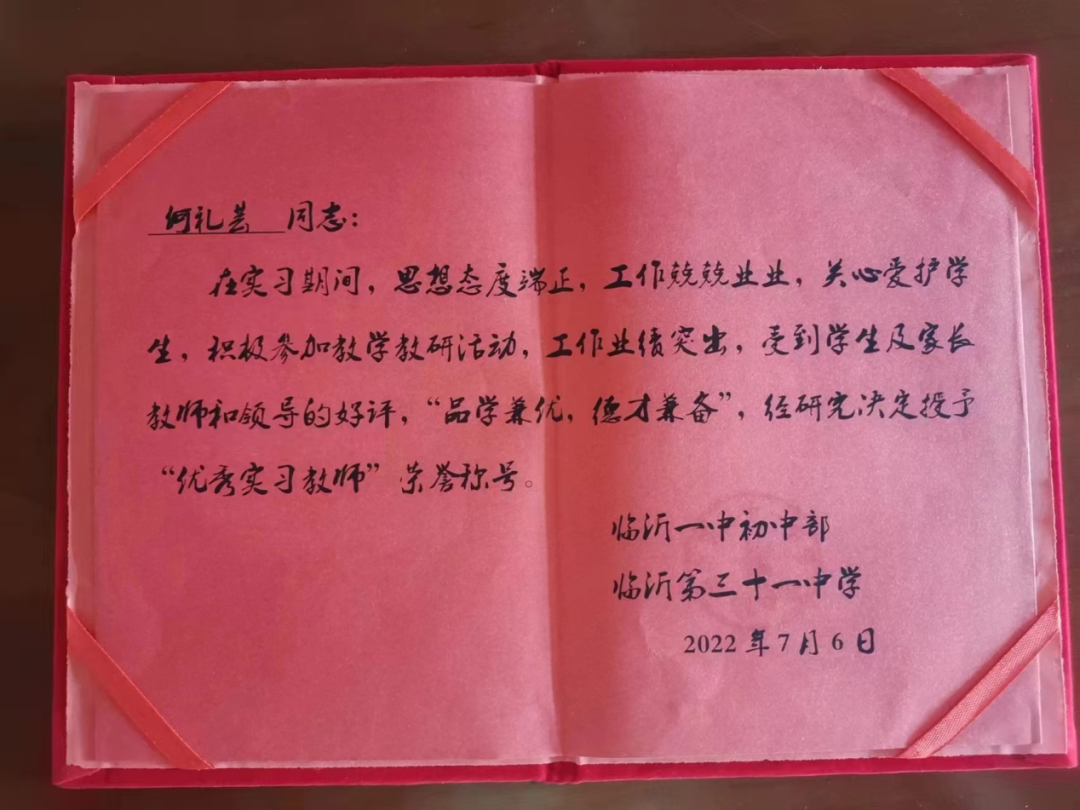 何礼芸 同志：
在实习期间，思想态度端正，工作兢兢业业，关心爱护学
生，积极参加教学教研活动，工作业绩突出，受到学生及家长
教师和领导的好评，“品学兼优，德才兼备”，经研究决定授予
“优秀实习教师”荣誉称号。
临沂一中初中部
临沂第三十一中学
2022年7月6日